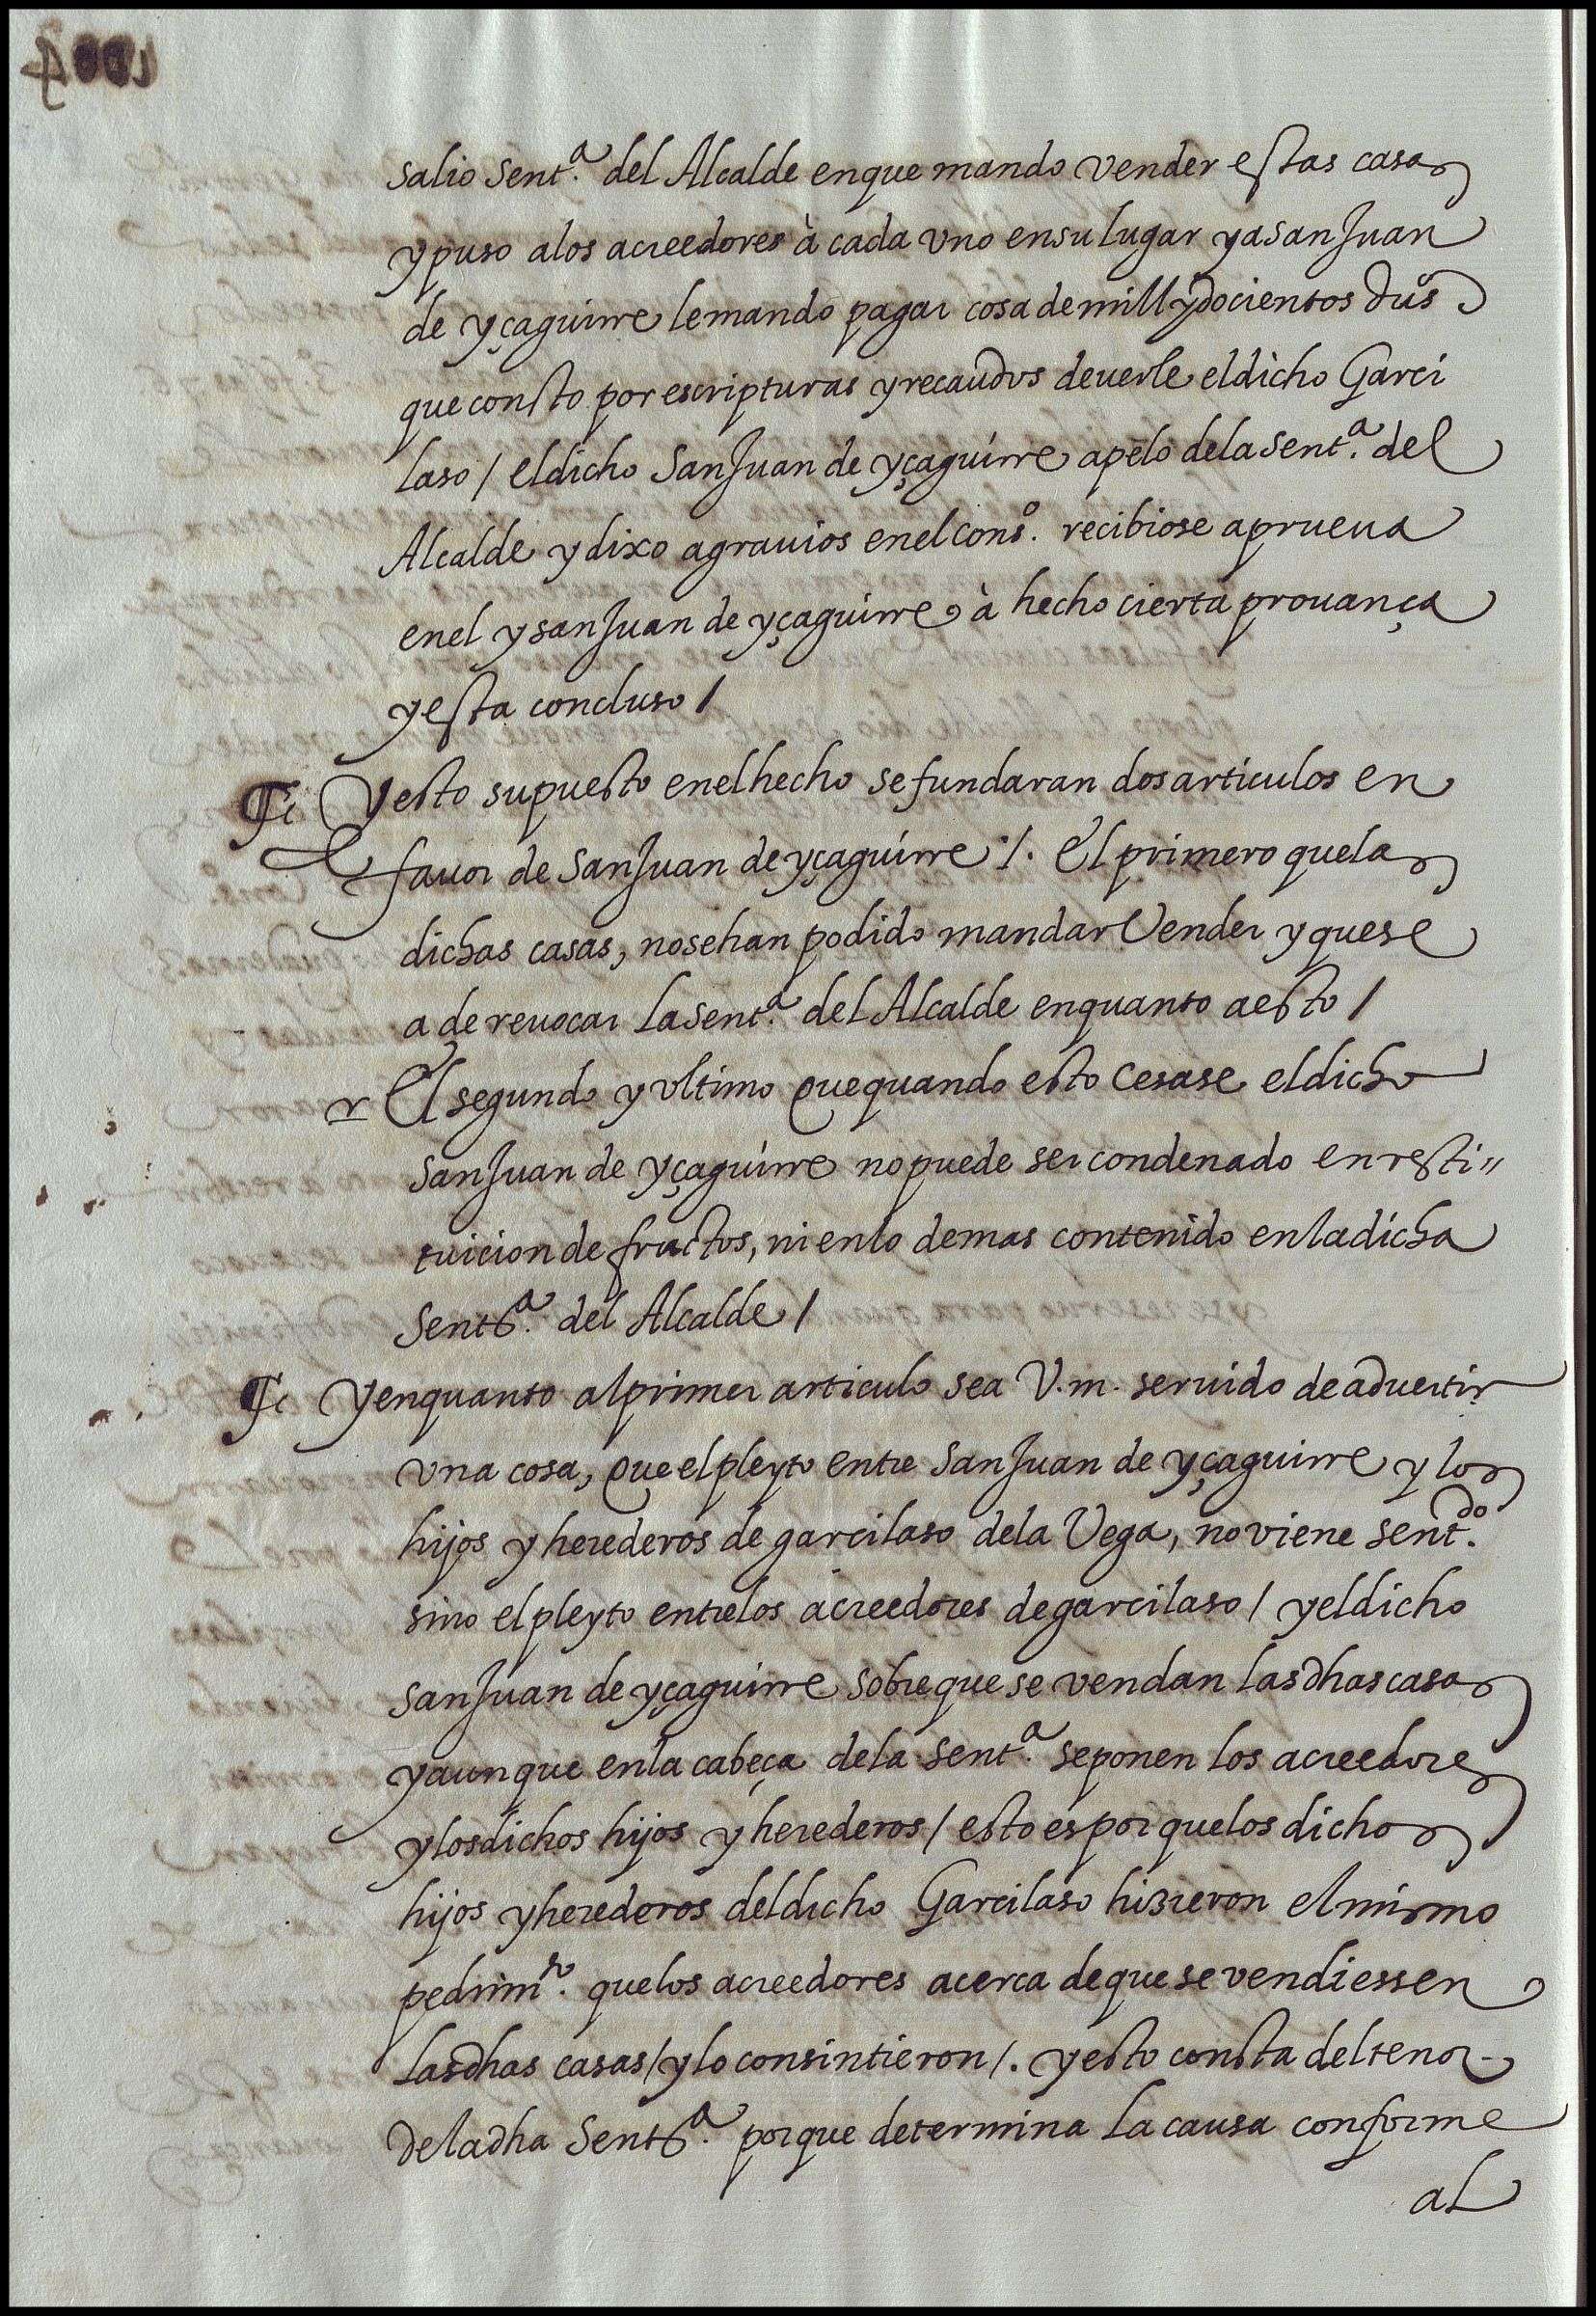 salio sent.ª del Alcalde enque mando vender estas casas
y puso alos acreedores à cada vno ensu lugar y a San Juan
de yçaguirre lemando pagar cosa de mill y docientos dus
que consto por escripturas y recaudos deuerle eldicho Garci
laso / eldicho San Juan de yçaguirre apelo dela sent.ª del
Alcalde y dixo agrauios enel Cons.º recibiose aprueua
enel y san Juan de yçaguirre à hecho cierta prouança
y esta concluso /
Yesto supuesto enelhecho sefundaran dos articulos en
fauor de San Juan de yçaguirre /. El primero quelas
dichas casas, nosehan podido mandar Vender y quese
a de reuocar la sent.ª del Alcalde enquanto aesto /
El segundo y vltimo que quando esto Cesase eldicho
San Juan de yçaguirre nopuede ser condenado en resti"
tuicion de fructos, ni enlo demas contenido enladicha
Sent.ª del Alcalde /
Yenquanto alprimer articulo sea V.m. seruido de aduertir
vna cosa, que elpleyto entre San Juan de yçaguirre y los
hijos y herederos de garcilaso dela Vega, noviene sent.do
sino elpleyto entrelos acreedores degarcilaso / yeldicho
San Juan de yçaguirre sobreque se vendan lasdhas casas
yaunque enla cabeça dela sent.ª seponen los acreedores
ylosdichos hijos y herederos / esto es porquelos dichos
hijos yherederos deldicho Garcilaso hizieron elmismo
pedim.to quelos acreedores acerca dequesevendiessen
lasdhas casas / ylo consintieron /. yesto consta deltenor
deladha Sent.ª porque determina la causa conforme
al